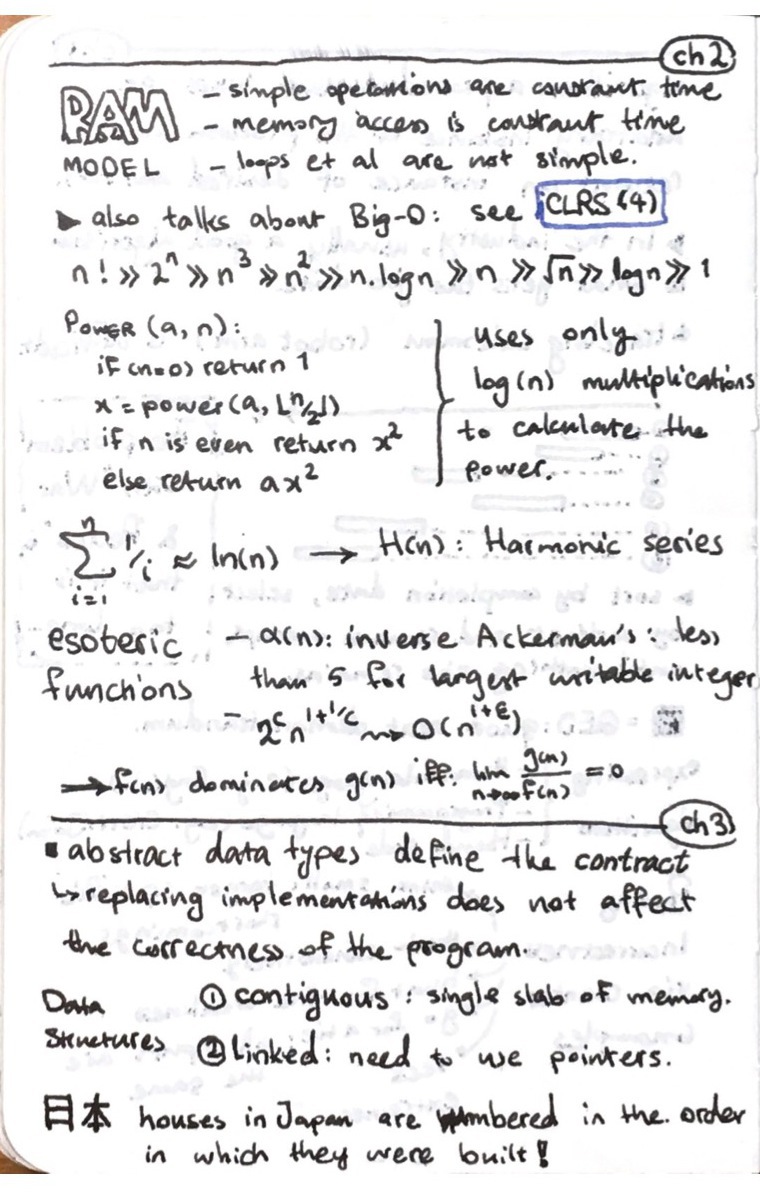 ch2
RAM - simple operations are constant time
- memory access is constant time
MODEL - loops et al are not simple.
▶ also talks about Big-O: see CLRS (4)
n! ≫ 2ⁿ ≫ n³ ≫ n² ≫ n.logn ≫ n ≫ √n ≫ logn ≫ 1
POWER (a, n):
if (n=0) return 1
x = power(a, ⌊n/2⌋)
if n is even return x²
else return ax²
uses only
log(n) multiplications
to calculate the
power.
n∑i=1 1/i ≈ ln(n) → H(n): Harmonic series
esoteric - α(n): inverse Ackerman's: less
functions than 5 for largest writable integer
- 2ᶜ n^(1+1/c) ⇝ O(n^(1+ε))
→ f(n) dominates g(n) iff. lim n→∞ g(n)/f(n) = 0
ch3
▪ abstract data types define the contract
↳ replacing implementations does not affect
the correctness of the program.
Data ① contiguous: single slab of memory.
Structures ② Linked: need to use pointers.
日本 houses in Japan are numbered in the order
in which they were built!